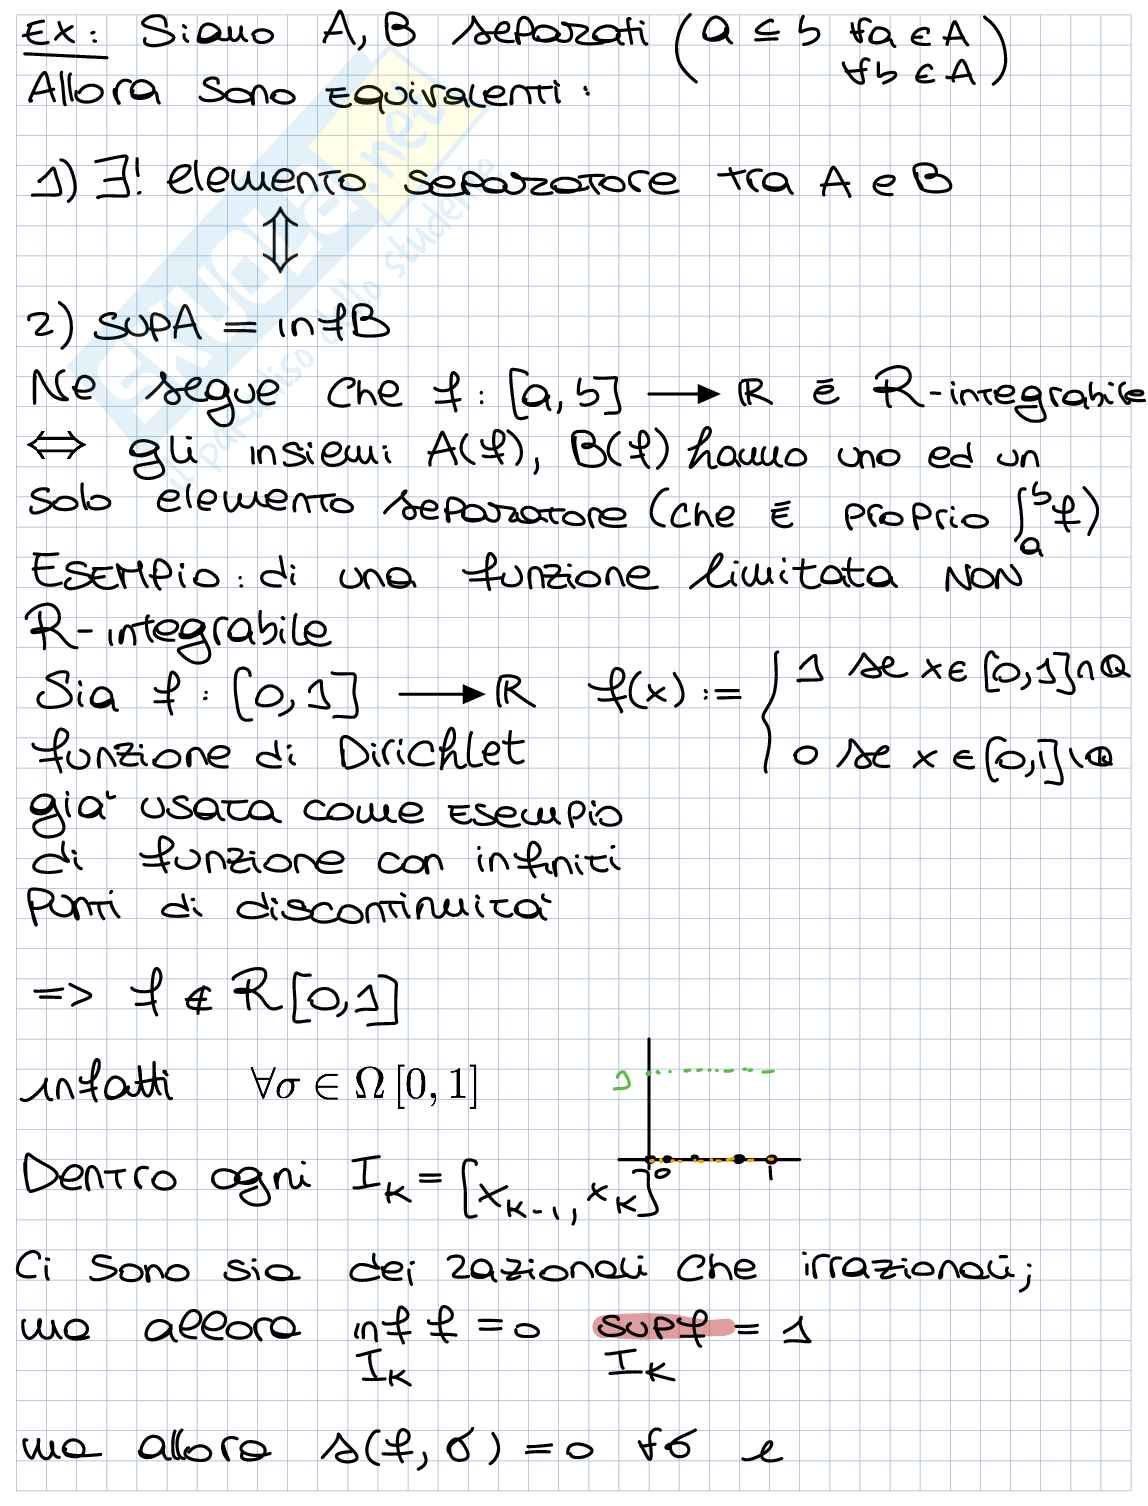 Ex: Siano A, B separati (a ≤ b ∀a ∈ A
∀b ∈ A)
Allora sono equivalenti:
1) ∃! elemento separatore tra A e B
⇕
2) sup A = inf B
Ne segue che f : [a, b] → ℝ è R-integrabile
⇔ gli insiemi A(f), B(f) hanno uno ed un
solo elemento separatore (che è proprio ∫_a^b f)
Esempio: di una funzione limitata NON
R-integrabile
Sia f : [0, 1] → ℝ f(x) := { 1 se x ∈ [0, 1] ∩ ℚ
0 se x ∈ [0, 1] \ ℚ
funzione di Dirichlet
già usata come esempio
di funzione con infiniti
punti di discontinuità
=> f ∉ R[0, 1]
infatti ∀σ ∈ Ω [0, 1]
1
0 1
Dentro ogni I_K = [x_{K-1}, x_K]
Ci sono sia dei razionali che irrazionali;
ma allora inf f = 0 sup f = 1
I_K I_K
ma allora s(f, σ) = 0 ∀σ e
SKUOLA.net
il paradiso dello studente